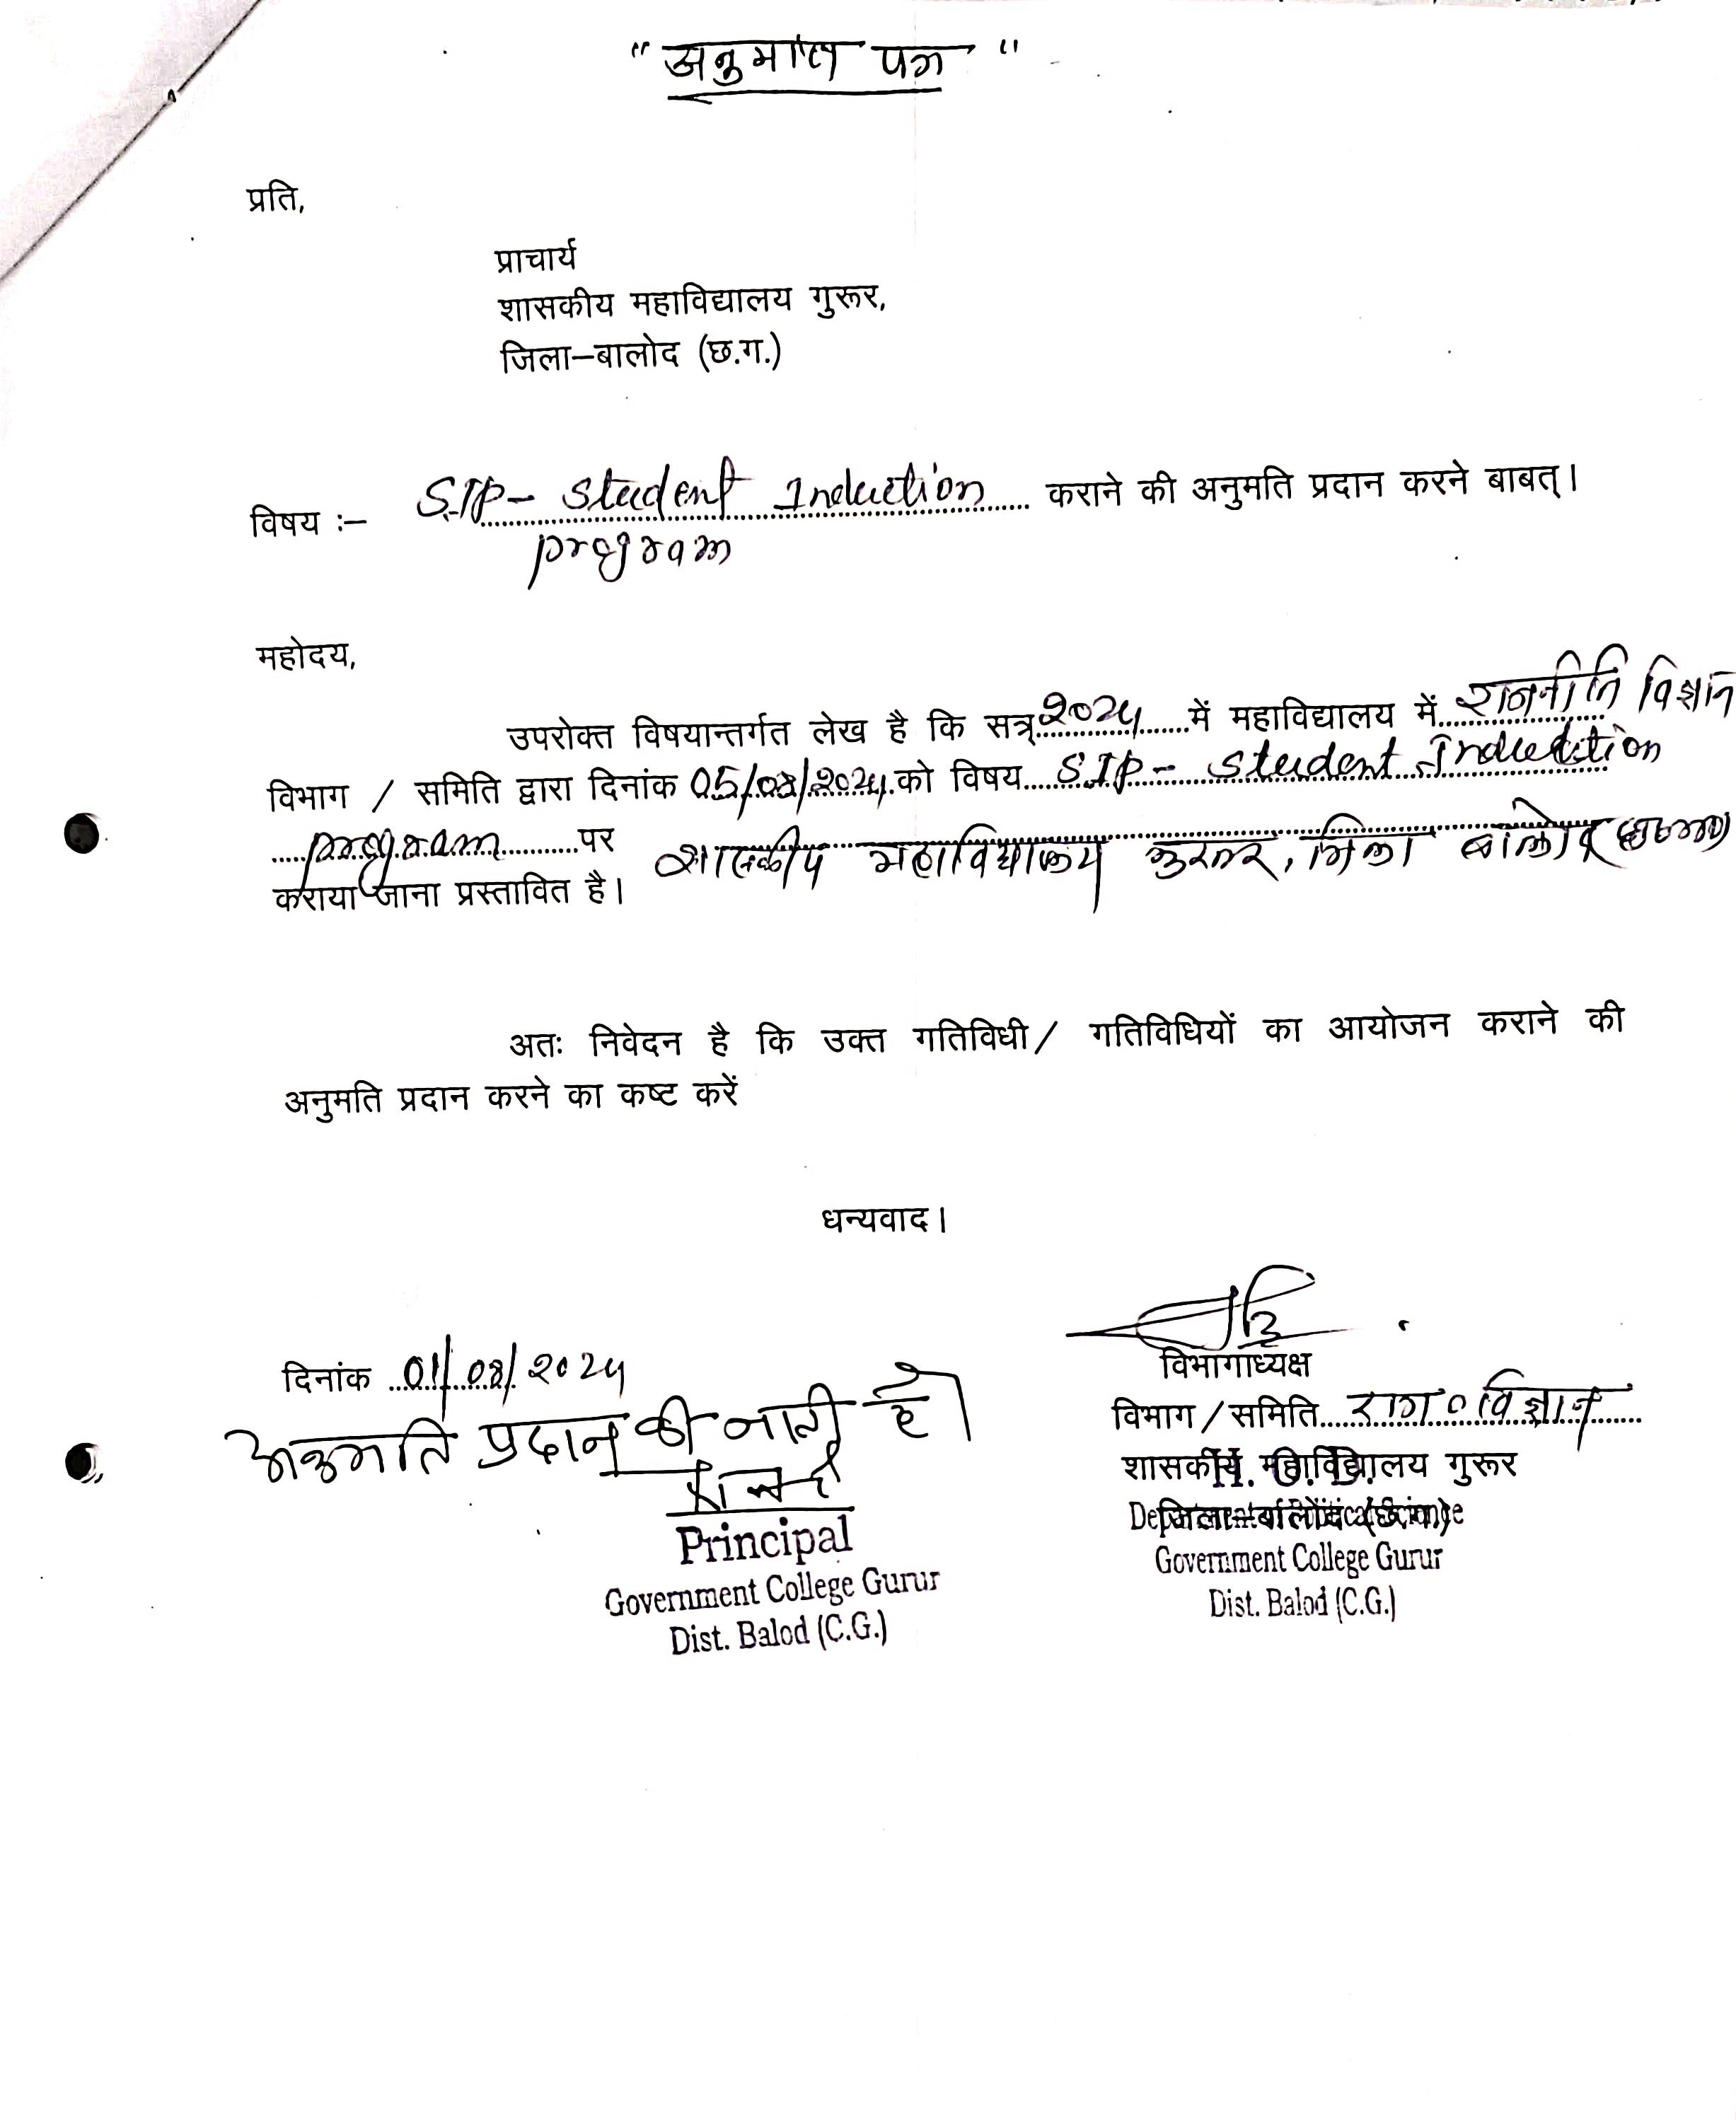 "अनुमति पत्र"
प्रति,
प्राचार्य
शासकीय महाविद्यालय गुरूर,
जिला–बालोद (छ.ग.)
विषय :– SIP – Student Induction कराने की अनुमति प्रदान करने बाबत्।
program
महोदय,
उपरोक्त विषयान्तर्गत लेख है कि सत्र् 2024 में महाविद्यालय में राजनीति विज्ञान
विभाग / समिति द्वारा दिनांक 05/08/2024 को विषय SIP – Student Induction
program पर शासकीय महाविद्यालय गुरूर, जिला बालोद
कराया जाना प्रस्तावित है।
अतः निवेदन है कि उक्त गतिविधी/ गतिविधियों का आयोजन कराने की
अनुमति प्रदान करने का कष्ट करें
धन्यवाद।
दिनांक 01/08/2024
अनुमति प्रदान की जाती है।
Principal
Government College Gurur
Dist. Balod (C.G.)
विभागाध्यक्ष
विभाग / समिति विज्ञान
शासकीय महाविद्यालय गुरूर
H.O.D.
जिला–बालोद (छ.ग.)
Department of Political Science
Government College Gurur
Dist. Balod (C.G.)